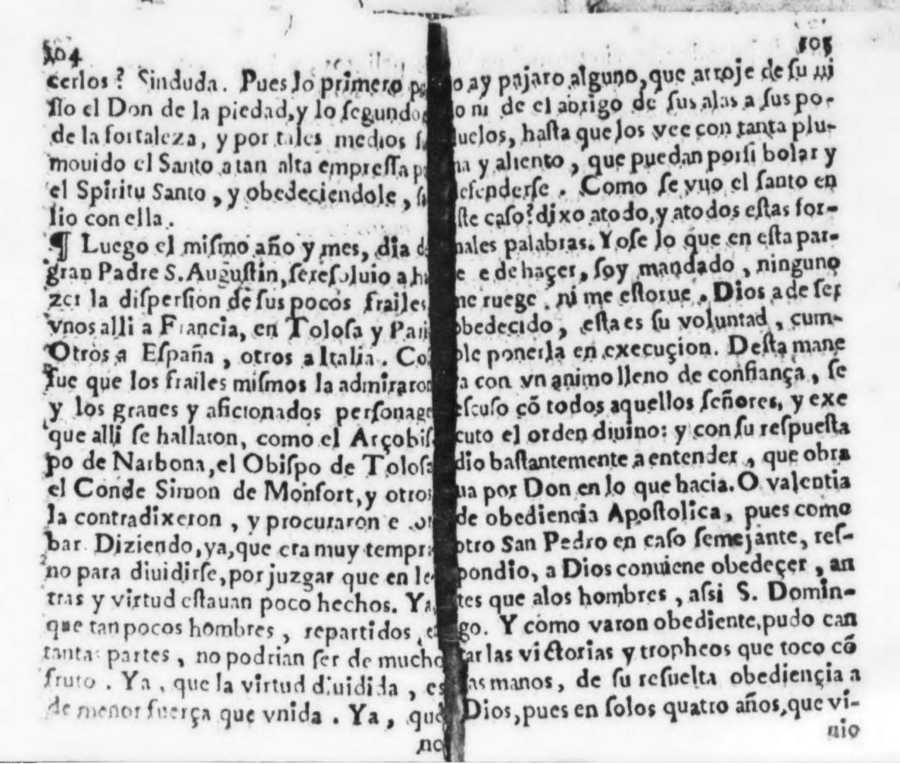 104
cerlos? Sinduda. Pues lo primero
ssio el Don de la piedad, y lo segundo
de la fortaleza, y por tales medios
mouido el Santo a tan alta empressa
el Spiritu Santo, y obedeciendole,
lio con ella.
¶ Luego el mismo año y mes, dia
gran Padre S. Augustin, se resoluio a
zer la dispersion de sus pocos frailes
vnos alli a Francia, en Tolosa y
Otros a España, otros a Italia.
fue que los frailes mismos la admiraron
y los graues y aficionados
que alli se hallaron, como el
po de Narbona, el Obispo de Tolosa
el Conde Simon de Monfort, y
la contradixeron, y procuraron
bar. Diziendo, ya, que era muy
no para diuidirse, por juzgar que en
tras y virtud estauan poco hechos. Ya,
que tan pocos hombres, repartidos,
tantas partes, no podrian ser de mucho
fruto. Ya, que la virtud diuidida,
de menor fuerça que vnida. Ya, que
no
105
ay pajaro alguno, que arroje de su ni
ni de el abrigo de sus alas a sus po-
hasta que los vee con tanta plu-
y aliento, que puedan por si bolar y
Como se vuo el santo en
caso? dixo a todo, y a todos estas for-
palabras. Yo se lo que en esta par-
de haçer, soy mandado, ninguno
me ruege, ni me estorue. Dios a de ser
obedecido, esta es su voluntad, cum-
ponerla en execuçion. Desta mane
ra con vn animo lleno de confiança, se
escuso cõ todos aquellos señores, y exe
cuto el orden diuino: y con su respuesta
dio bastantemente a entender, que obra
ua por Don en lo que hacia. O valentia
de obediencia Apostolica, pues como
otro San Pedro en caso semejante, res-
pondio, a Dios conuiene obedeçer, an
tes que a los hombres, assi S. Domin-
go. Y como varon obediente, pudo can
tar las victorias y tropheos que toco cõ
las manos, de su resuelta obediençia a
Dios, pues en solos quatro años, que vi-
nio